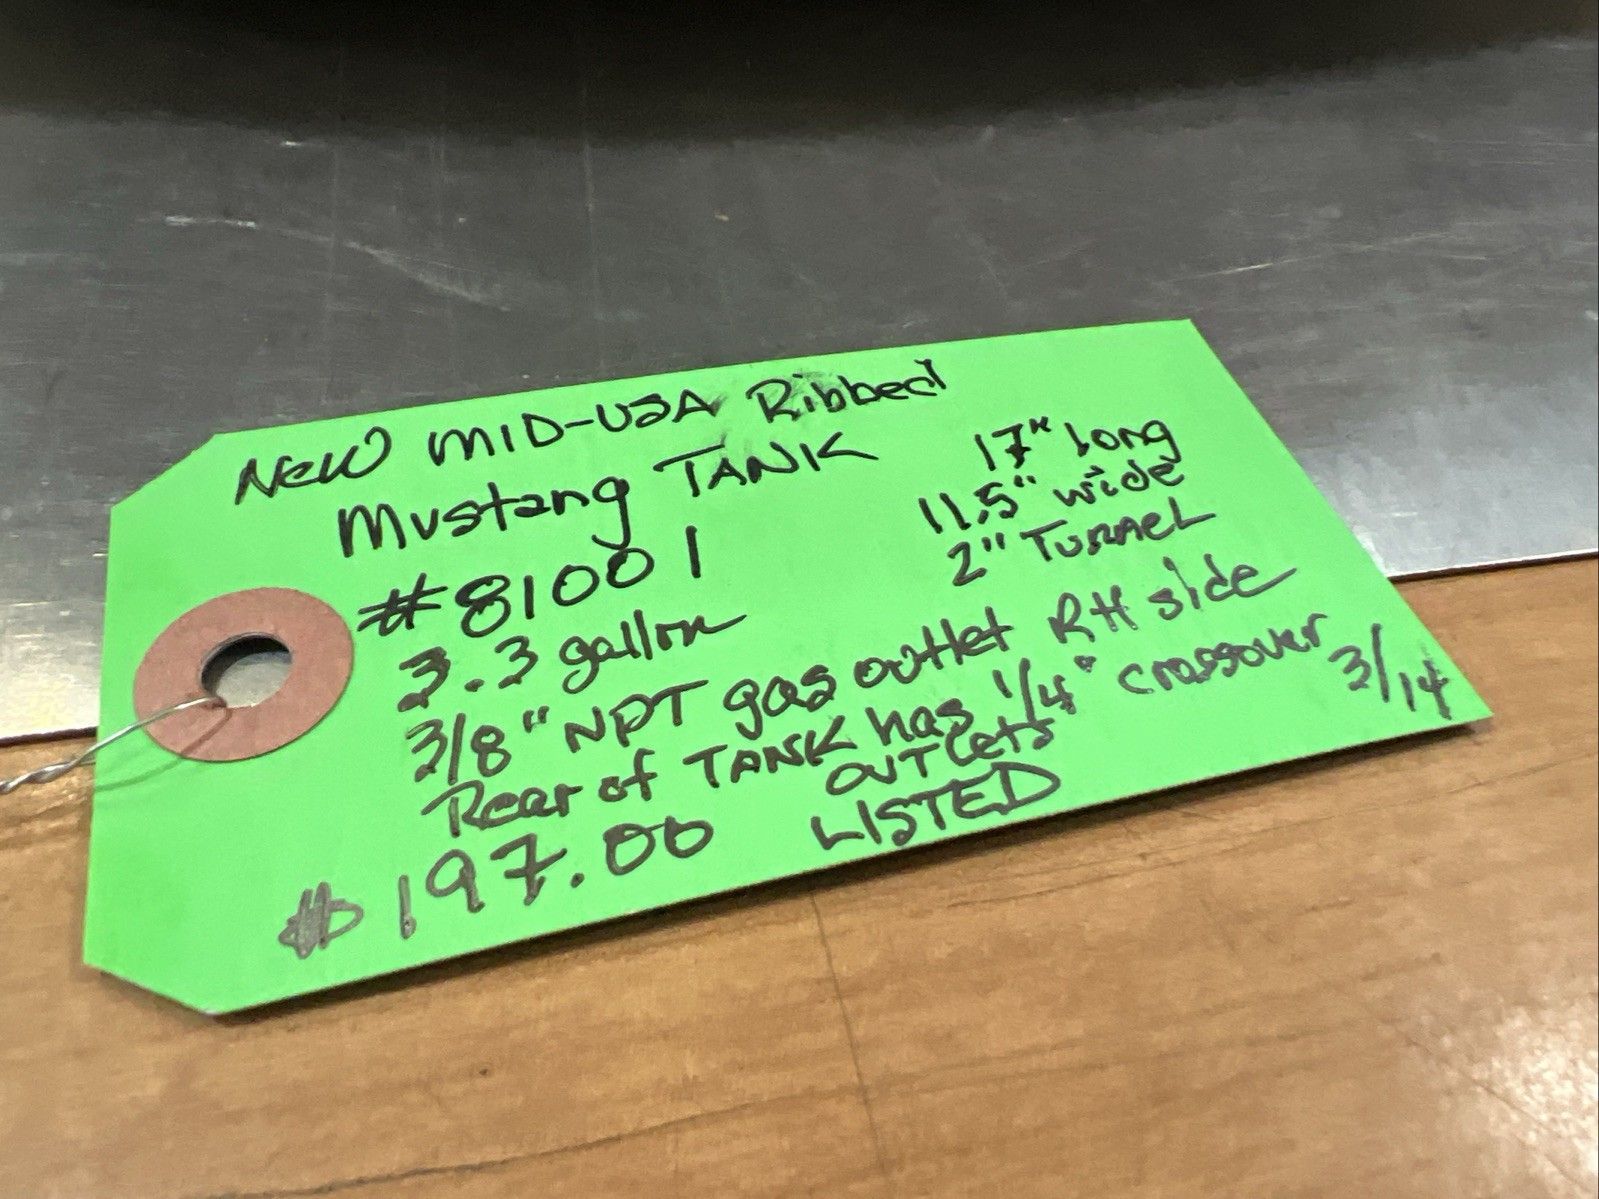 New MID-USA Ribbed
Mustang TANK
#81001
3.3 gallon
17" long
11.5" wide
2" TUNNEL
3/8" NPT gas outlet RH side
Rear of TANK has 1/4" crossover
OUTLets
3/14
$197.00 LISTED